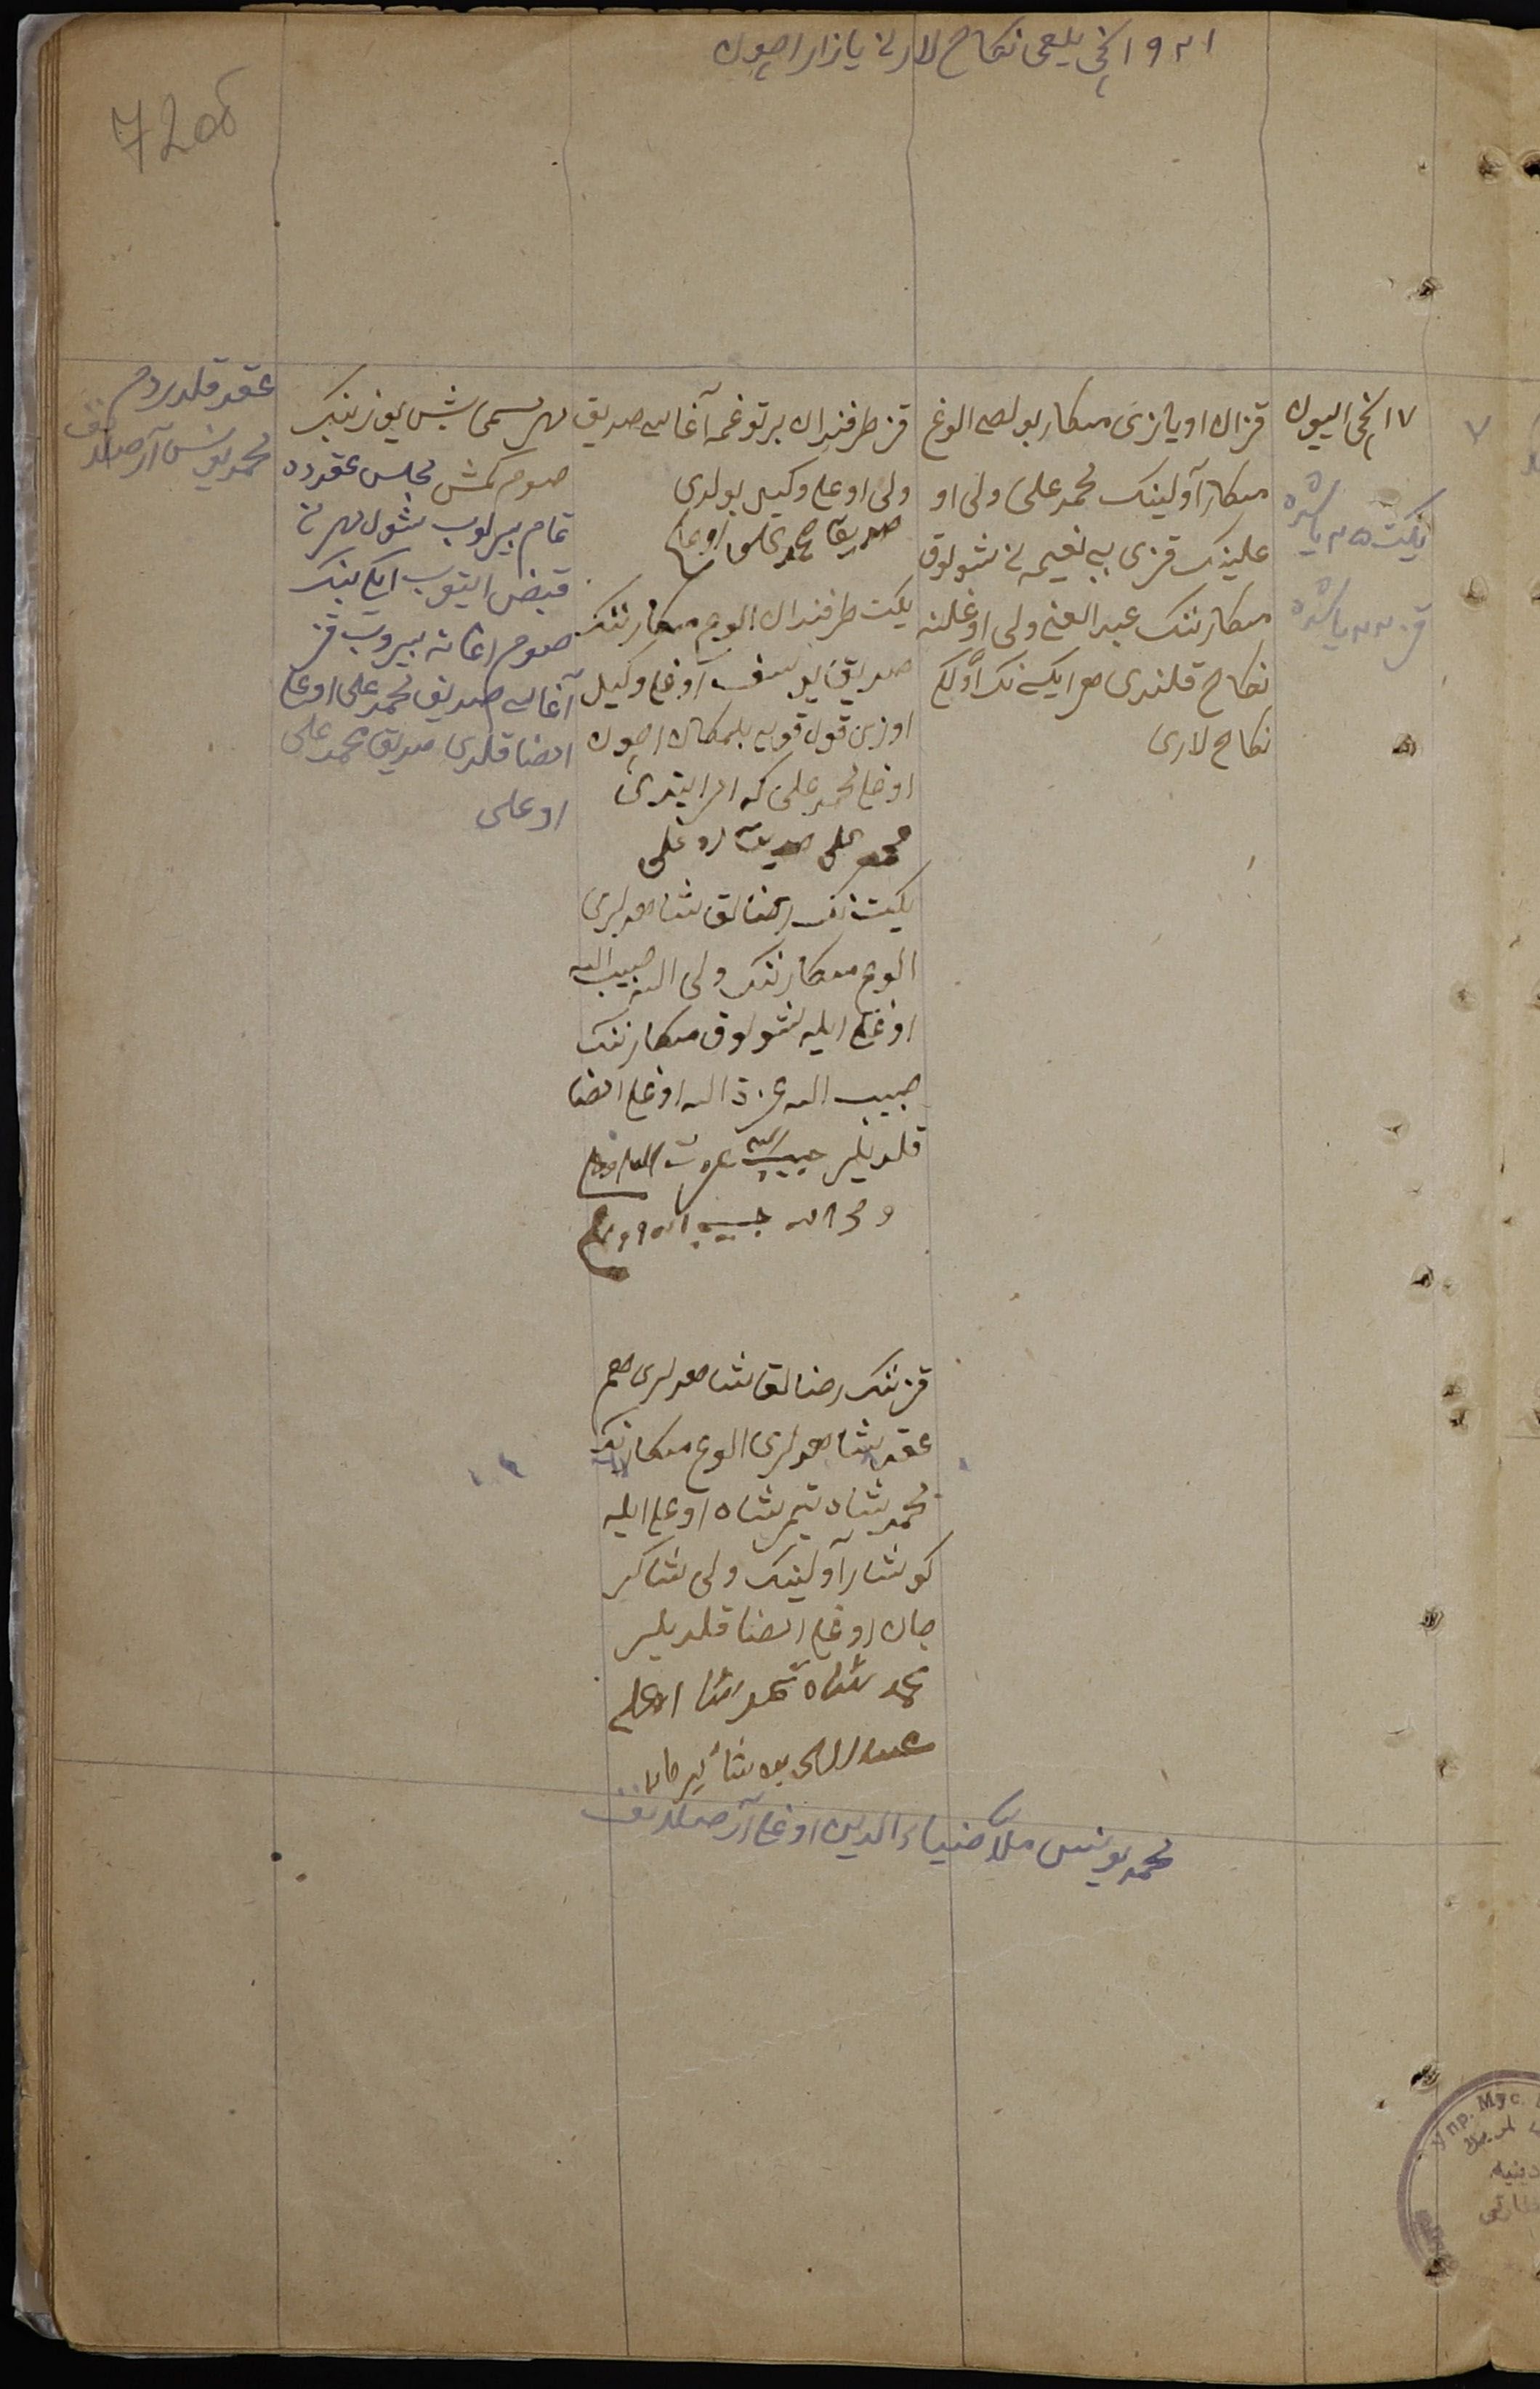 ١٩٢١ نجی یلغی نکاح لارنی یازار اچون
72об
٧
١٧ نجی اییون
یکت ٢٥ یاشده
قز ٢٢ یاشده
قزان اویازی منکار بولصی الوغ
منکار آولینک محمدعلی ولی او
علینک قزی بی نعیمه نی شولوق
منکارننک عبدالغنی ولی اوغلینه
نکاح قلندی هر ایکی نک اولکی
نکاح لاری
قز طرفندان برتوغمه آغاسی صدیق
ولی اوغلی وکیل بولدی
صدیق محمدعلی اوغلی
یکت طرفندان الوغ منکارننک
صدیق یوسف اوغلی وکیل
اوزی قول قویه بلمکان اچون
اوغلی محمدعلی که امر ایتدی
محمد علی صدیق اوغلی
یکیت ننک رضالق شاهدلری
الوغ منکارننک ولی الله حبیب الله
اوغلی ایله شولوق منکارننک
حبیب الله عزة الله اوغلی امضا
قلدیلر حبیب الله عزت الله اوغلی
ولی الله حبیب الله اوغلی
قزننک رضالق شاهدلری هم
عقد شاهدلری الوغ منکارننک
محمدشاه تیمرشاه اوغلی ایله
کوشار آولینک ولی شاکر
جان اوغلی امضا قلدیلر
محمد شاه تیمرشا اوغلی
محمدیونس ملا ضیاءالدین اوغلی آرصلانف
مهر مسمی بش یوز بنک
صوم کمش مجلس عقدده
تمام بیرلوب شول مهرنی
قبض ایتوب ایکی بنک
صوم اعانه بیروب قز
آغاسی صدیق محمدعلی اوغلی
امضا قلدی صدیق محمدعلی
اوغلی
عقد قلدردم
محمدیونس آرصلانف
Упр. Мус.
دینیه